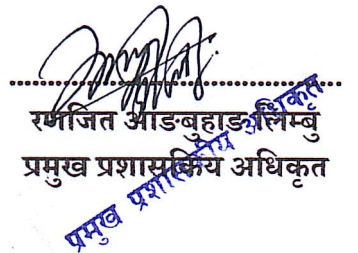 रणजित आङबुहाङ लिम्बु
प्रमुख प्रशासकिय अधिकृत
प्रमुख प्रशासकीय अधिकृत